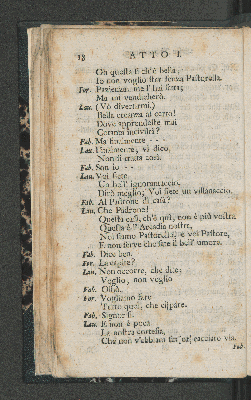 18 ATTO I.
Oh questa sì ch'è bella;
Io non voglio star senza Pastorella.
For. Pazienza, me l'hai fatta;
Ma mi vendicherò.
Lau. (Vò divertirmi.)
Bella creanza al certo!
Dove apprendeste mai
Cotanta inciviltà?
Fab. Ma finalmente - -
Lau. Finalmente, vi dico,
Non si tratta così.
Fab. Son io - -
Lau. Voi siete
Un bell' ignorantaccio,
Dirò meglio; Voi siete un villanaccio.
Fab. Al Padrone di casa?
Lau. Che Padrone!
Questa casa, ch'è quì, non è più vostra.
Questa è l' Arcadia nostra,
Noi siamo Pastorelle, e voi Pastore,
E non serve che fate il bell' umore.
Fab. Dice ben.
For. La capite?
Lau. Non occorre, che dite;
Voglio, non voglio
Fab. Oibò.
For. Vogliamo fare
Tutto quel, che ci pare.
Fab. Signor sì.
Lau. E non è poca
La nostra cortesia,
Che non v'abbiam ancor cacciato via.
Fab.